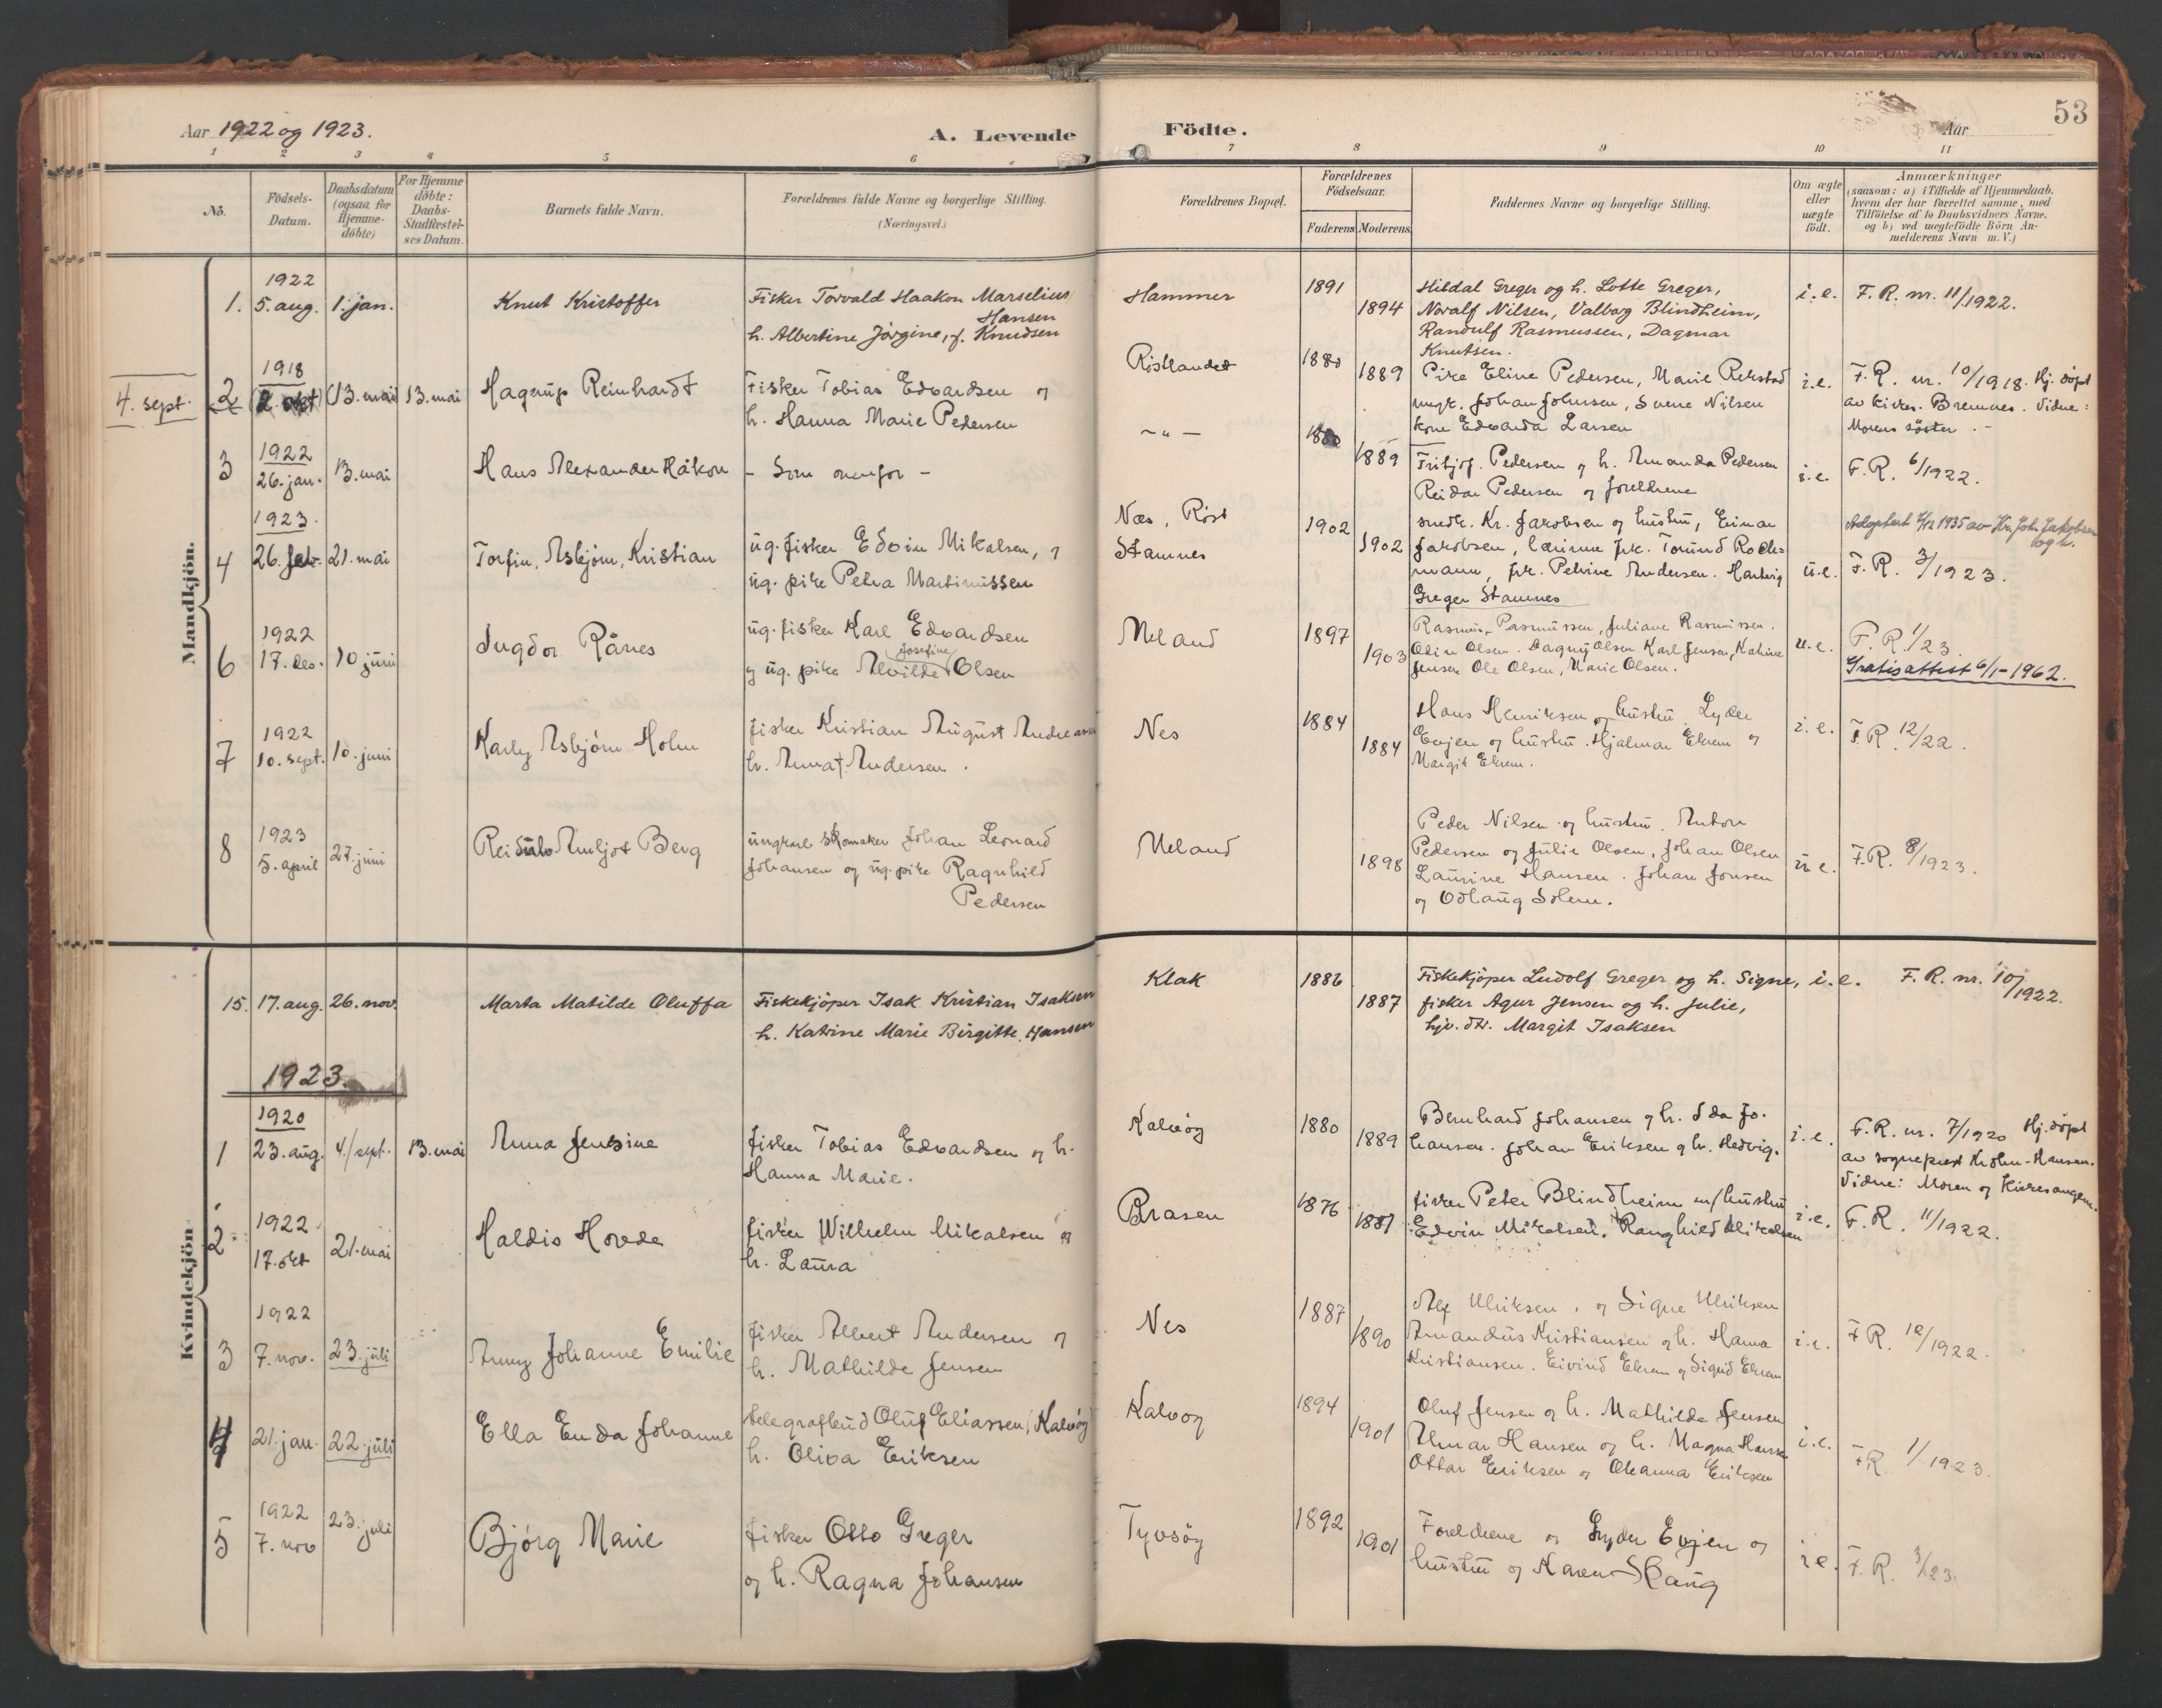 Aar 1922 og 1923.
A. Levende Födte.
Aar
53
1 2 3 4 5 6 7 8 9 10 11
No.
Födsels-Datum.
Daabsdatum (ogsaa for Hjemme-döbte)
For Hjemme döbte: Daabs-Stadfæstel-ses Datum.
Barnets fulde Navn.
Forældrenes fulde Navne og borgerlige Stilling.
(Næringsvei.)
Forældrenes Bopæl.
Forældrenes Födselsaar.
Faderens Moderens
Faddernes Navne og borgerlige Stilling.
Om ægte eller uægte födt.
Anmærkninger
(saasom: a) i Tilfælde af Hjemmedaab.
hvem der har forrettet samme, med
Tilföielse af to Daabsvidners Navne.
og b) ved uægtefödte Börn An-
melderens Navn m.V.)
Mandkjön.
1922
1. 5. aug. 1. jan. Knut Kristoffer
Fisker Torvald Haakon Marselius
Hansen
h. Albertine Jörgine, f. Knudsen
Hammer 1891 1894
Hildal Greger og h. Lotte Greger,
Noralf Nilsen, Valborg Blindheim,
Randulf Rasmussen, Dagmar
Knutsen.
i.e. F.R. nr. 11/1922.
4. sept.
1918
2 (2. okt) (13. mai) 13. mai Hagerup Reinhardt
Fisker Tobias Edvardsen og
h. Hanna Marie Pedersen
Röstlandet 1880 1889
Pike Eline Pedersen, Marie Rekstad
ungk. Johan Johnsen, Svene Nilsen
kone Edvarda Larsen
i.e. F.R. nr. 10/1918. Hj. döpt
av kirkes. Bremnes. Vidne:
Morens söster.-
1922
3 26. jan. 13. mai Hans Alexander Håkon
- Som ovenfor -
- " - 1880 1889
Fritjof. Pedersen og h. Amanda Pedersen
Reidar Pedersen og foreldrene
i.e. F.R. 6/1922.
1923.
4 26. feb. 21. mai Torfin, Asbjörn, Kristian
ug. fisker Edvin Mikalsen, og
ug. pike Petra Martinussen
Næs, Röst
Stamnes 1902 1902
snedk. Kr. Jakobsen og hustru, Einar
Jakobsen, lærinne frk. Torund Roch=
mann, frk. Petrine Andersen. Hartvig
Greger Stamnes
u.e. Adoptert 1935 av Joh. Jakobsen
og h.
F.R. 3/1923.
1922
6 17. des. 10 juni Ingdor Rånes
ug. fisker Karl Edvardsen
Josefine
og ug. pike Alvilde Olsen
Meland 1897 1903
Rasmus Rasmussen, Juliane Rasmussen.
Odin Olsen. Dagny Olsen Karl Jensen, Katrine
Jensen Ole Olsen, Marie Olsen.
u.e. F.R. 1/23.
Gratisattest 6/1-1962.
1922
7 10. sept. 10. juni Karly Asbjörn Holm
fisker Kristian August Andreassen
h. Anna f. Andersen.
Nes 1884 1884
Hans Henriksen og hustru. Lyder
Evjen og hustru. Hjalmar Ekrem og
Margit Ekrem.
i.e. F.R. 12/22.
1923
8 5. april 27. juni Reidulv Anljot Berg
ungkarl skomaker Johan Leonard
Johansen og ug. pike Ragnhild
Pedersen
Meland 1898
Peder Nilsen og hustru. Anton
Pedersen og Julie Olsen, Johan Olsen
Laurine Hansen. Johan Jonsen
og Odlaug Solem.
u.e. F.R. 8/1923.
Kvindekjön
15. 17. aug. 26. nov. Marta Matilde Oluffa
Fiskekjöper Isak Kristian Isaksen
h. Katrine Marie Birgitte. Hansen
Klak 1886 1887
Fiskekjöper Ludolf Greger og h. Signe,
fisker Agur Jensen og h. Julie,
hjv. dtr. Margit Isaksen
i.e. F.R. nr. 10/1922.
1923.
1920
1 23. aug. 4/sept. 13. mai Anna Jensine
fisker Tobias Edvardsen og h.
Hanna Marie.
Kalvög 1880 1889
Bernhard Johansen og h. Ida Jo-
hansen. Johan Eriksen og h. Hedvig.
i.e. F.R. nr. 7/1920 Hj. döpt
av sogneprest Krohn-Hansen.
Vidne: Moren og Kirkesangeren.
1922
2 17. okt 21. mai Haldis Hovda
fisker Wilhelm Mikalsen og
h. Laura
Brasen 1876 1887
fisker Peter Blindheim m/hustru
Edvin Mikalsen. Ranghild Mikalsen
i.e. F.R. 11/1922.
1922
3 7. nov. 23. juli Anny Johanne Emilie
fisker Albert Andersen og
h. Mathilde Jensen
Nes 1887 1890
Alf Ulriksen, og Signe Ulriksen
Amandus Kristiansen og h. Hanna
Kristiansen. Eivind Ekrem og Sigrid Ekrem
i.e. F.R. 12/1922.
4 21. jan. 22. juli Ella Enda Johanne
telegrafbud Oluf Eliassen (Kalvög)
h. Oliva Eriksen
Kalvög 1894 1901
Oluf Jensen og h. Mathilde Jensen
Almar Hansen og h. Magna Hansen
Ottar Eriksen og Oleanna Eriksen
i.e. F.R. 1/1923.
1922
5 7. nov 23. juli Bjórg Marie
fisker Otto Greger
og h. Ragna Johansen
Tyvsöy 1892 1901
Foreldrene og Lyder Evjen og
hustru og Karen Skaug
i.e. F.R. 3/23.